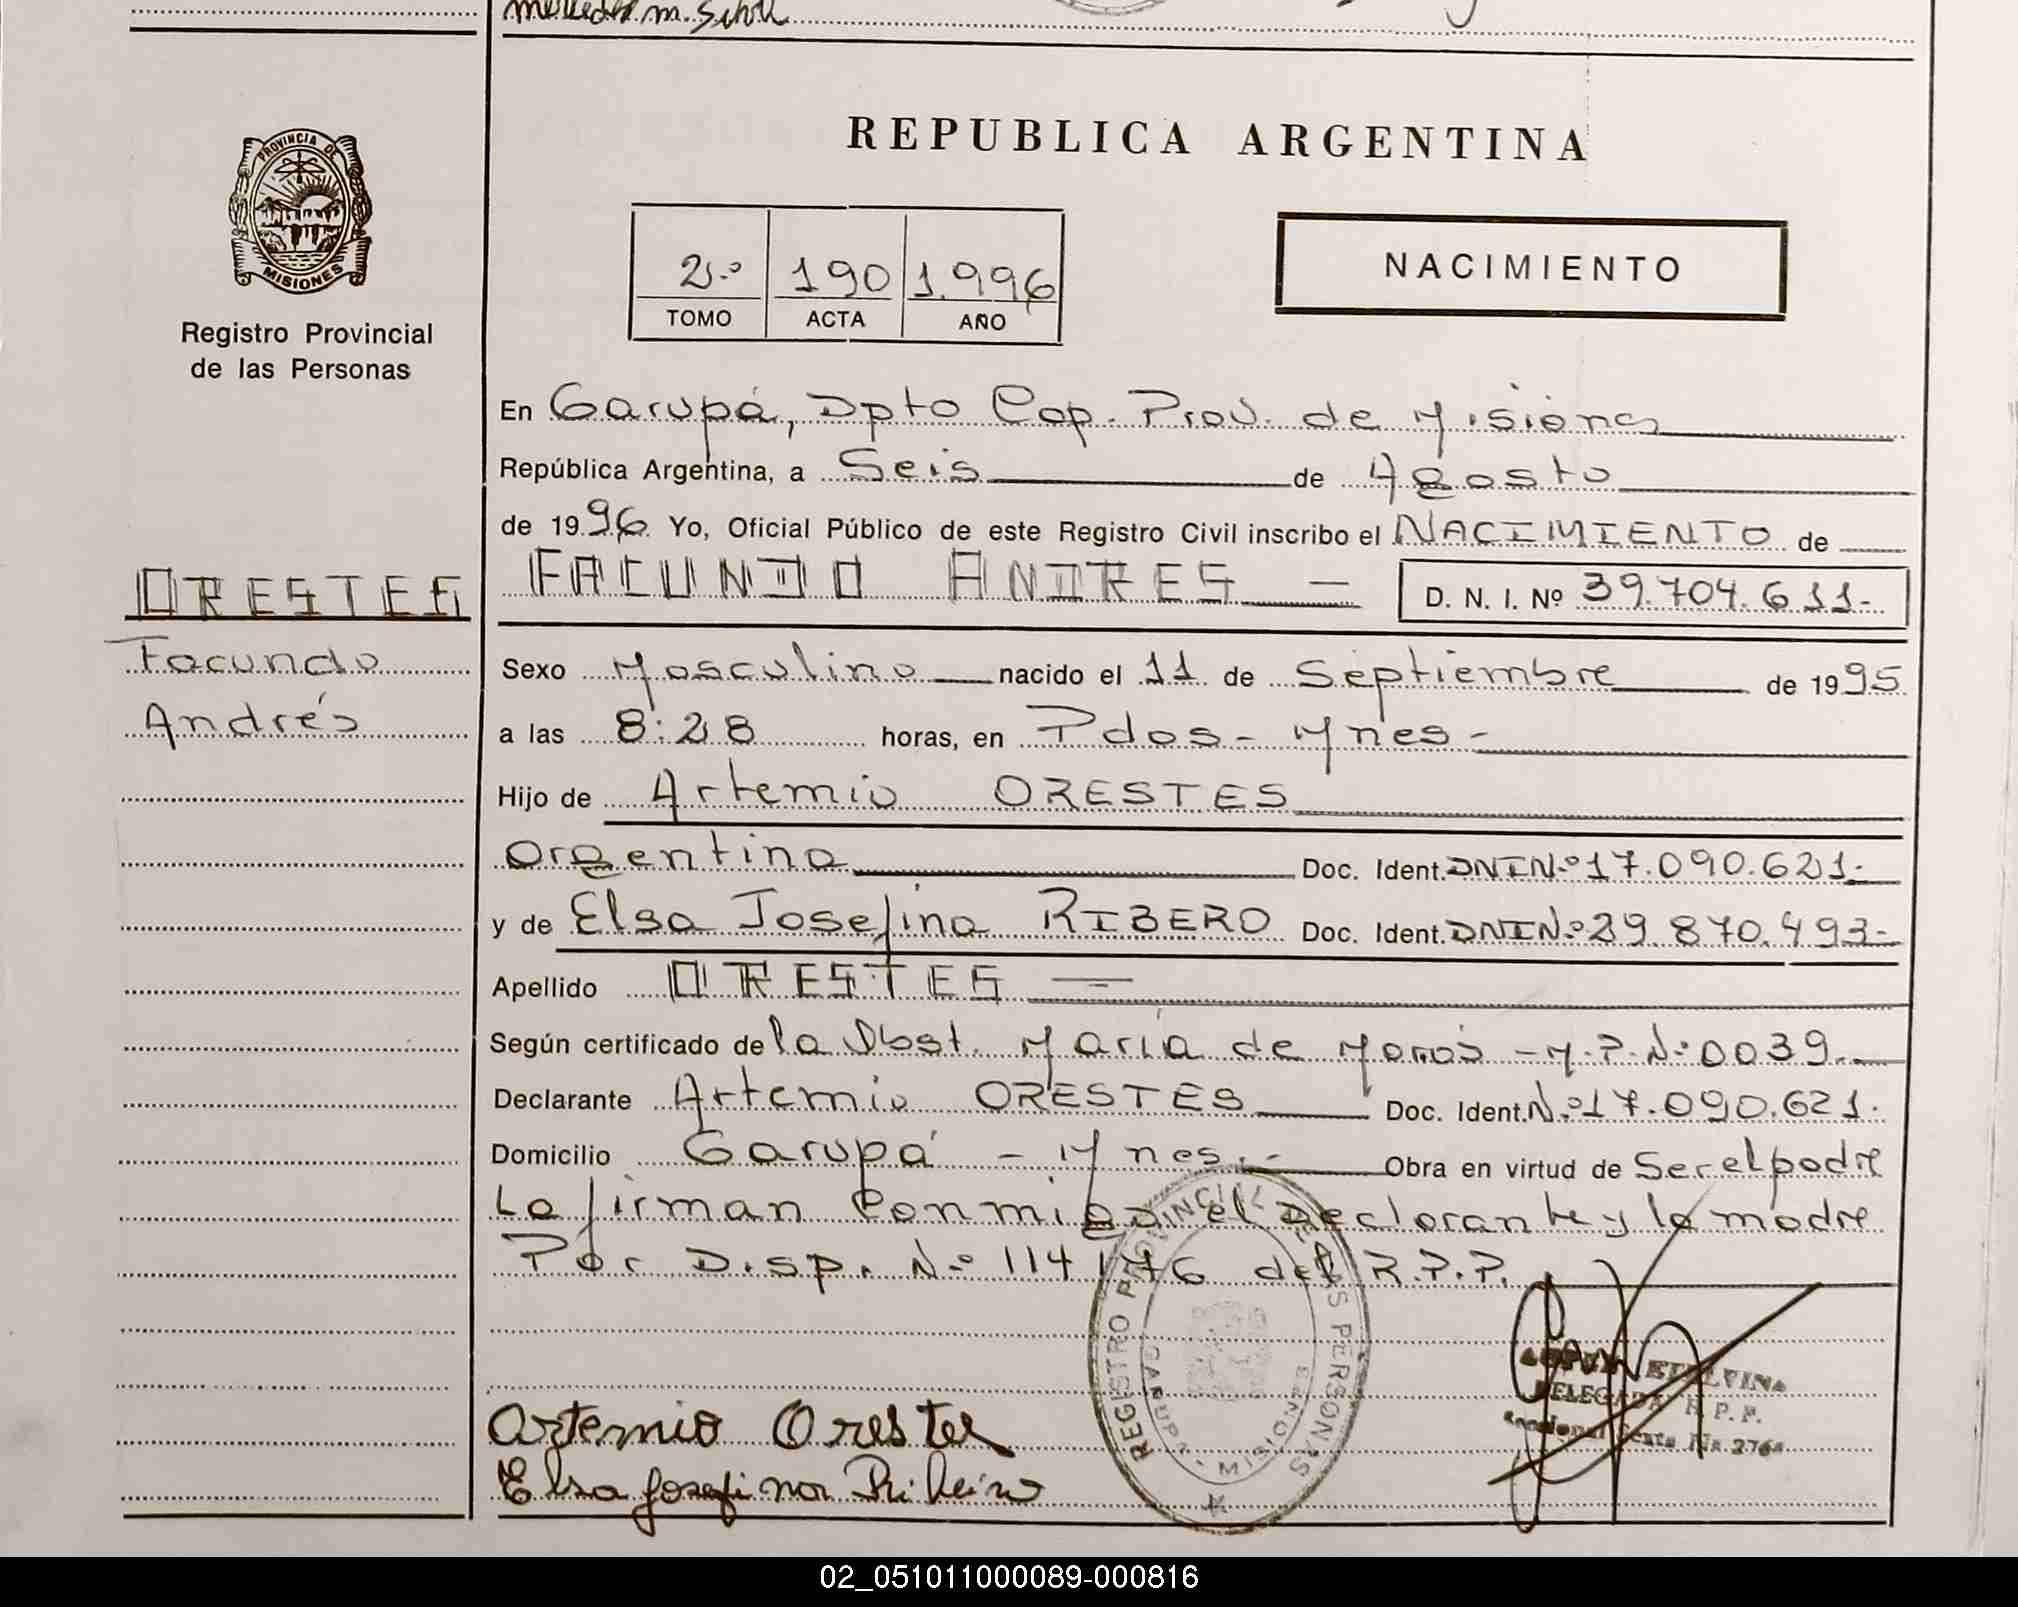 Mercedes M. Scholl
PROVINCIA DE
MISIONES
Registro Provincial
de las Personas
REPUBLICA ARGENTINA
2º 190 1.996
TOMO ACTA AÑO
NACIMIENTO
En Garupá, Dpto Cap. Prov. de Misiones
República Argentina, a Seis de Agosto
de 1996 Yo, Oficial Público de este Registro Civil inscribo el NACIMIENTO de
ORESTES
Facundo
Andrés
FACUNDO ANDRES — D. N. I. Nº 39.704.611-
Sexo Masculino nacido el 11 de Septiembre de 1995
a las 8:28 horas, en Pdas - Mnes -
Hijo de Artemio ORESTES
Argentina Doc. Ident. DNI Nº 17.090.621-
y de Elsa Josefina RIBERO Doc. Ident. DNI Nº 29 870.493-
Apellido ORESTES
Según certificado de la Obst. María de Morós - M.P. Nº 0039
Declarante Artemio ORESTES Doc. Ident. Nº 17.090.621.
Domicilio Garupá - Mnes.- Obra en virtud de Ser el padre
La firman conmigo el declarante y la madre
Por Disp. Nº 114/76 del R.P.P.
REGISTRO PROVINCIAL DE LAS PERSONAS
GARUPA - MISIONES
ETELVINA
DELEGADA R. P. P.
Seccional Sexta Nº 2764
Artemio Orestes
Elsa Josefina Ribeiro
02_051011000089-000816